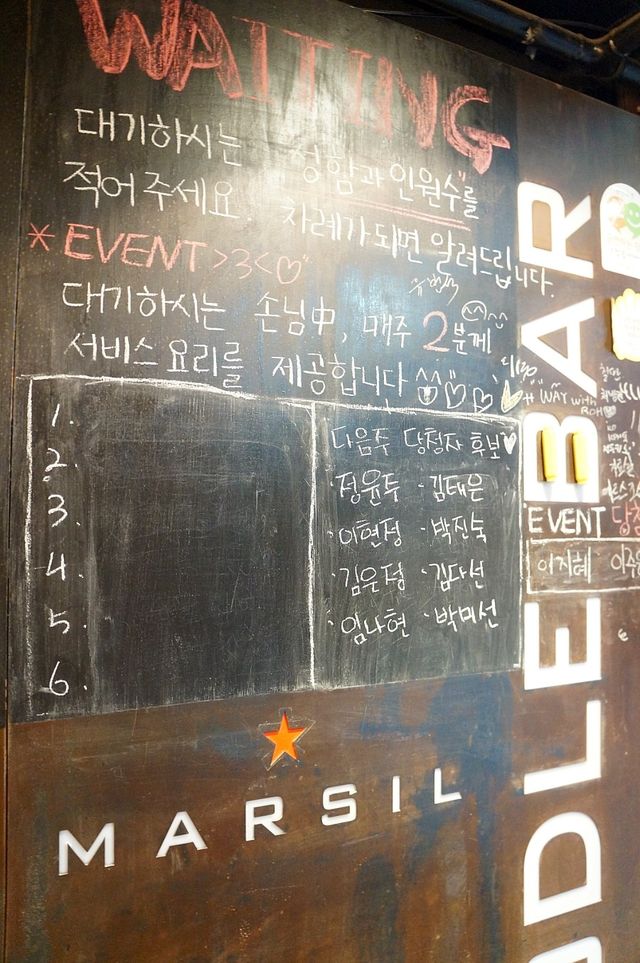 WAITING
대기하시는 "성함과 인원수"를
적어주세요. 차례가 되면 알려드립니다.
* EVENT >3<♡"
대기하시는 손님中, 매주 2분께
서비스 요리를 제공합니다 ^^♡♡
1.
2.
3.
4.
5.
6.
다음주 당첨자 후보♥
·정윤주 ·김태은
·이현정 ·박진숙
·김은정 ·김다선
·임나현 ·박미선
WAY with
ROH
EVENT 당첨
이지혜 이주
DLE BAR
MARSIL